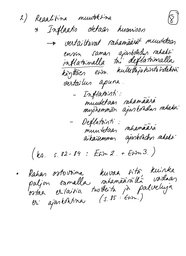 8
2) Reaalitina muutoksina
* Inflaatio otetaan huomioon
→ vertailtavat rahamäärät muutetaan
ensin saman ajankohdan rahaksi
inflatoimalla tai deflatoimalla
käyttäen esim. kuluttajahintaindeksiä
vertailun apuna.
- Inflatointi:
muutetaan rahamäärä
myöhemmän ajankohdan rahaksi
- Deflatointi:
muutetaan rahamäärä
aikaisemman ajankohdan rahaksi
(ks. s. 82-84 : Esim 2. + Esim 3.)
• Rahan ostovoima kuvaa sitä kuinka
paljon samalla rahamäärällä voidaan
ostaa erilaisia tuotteita ja palveluja
eri ajankohtina (s. 85 : Esim.)